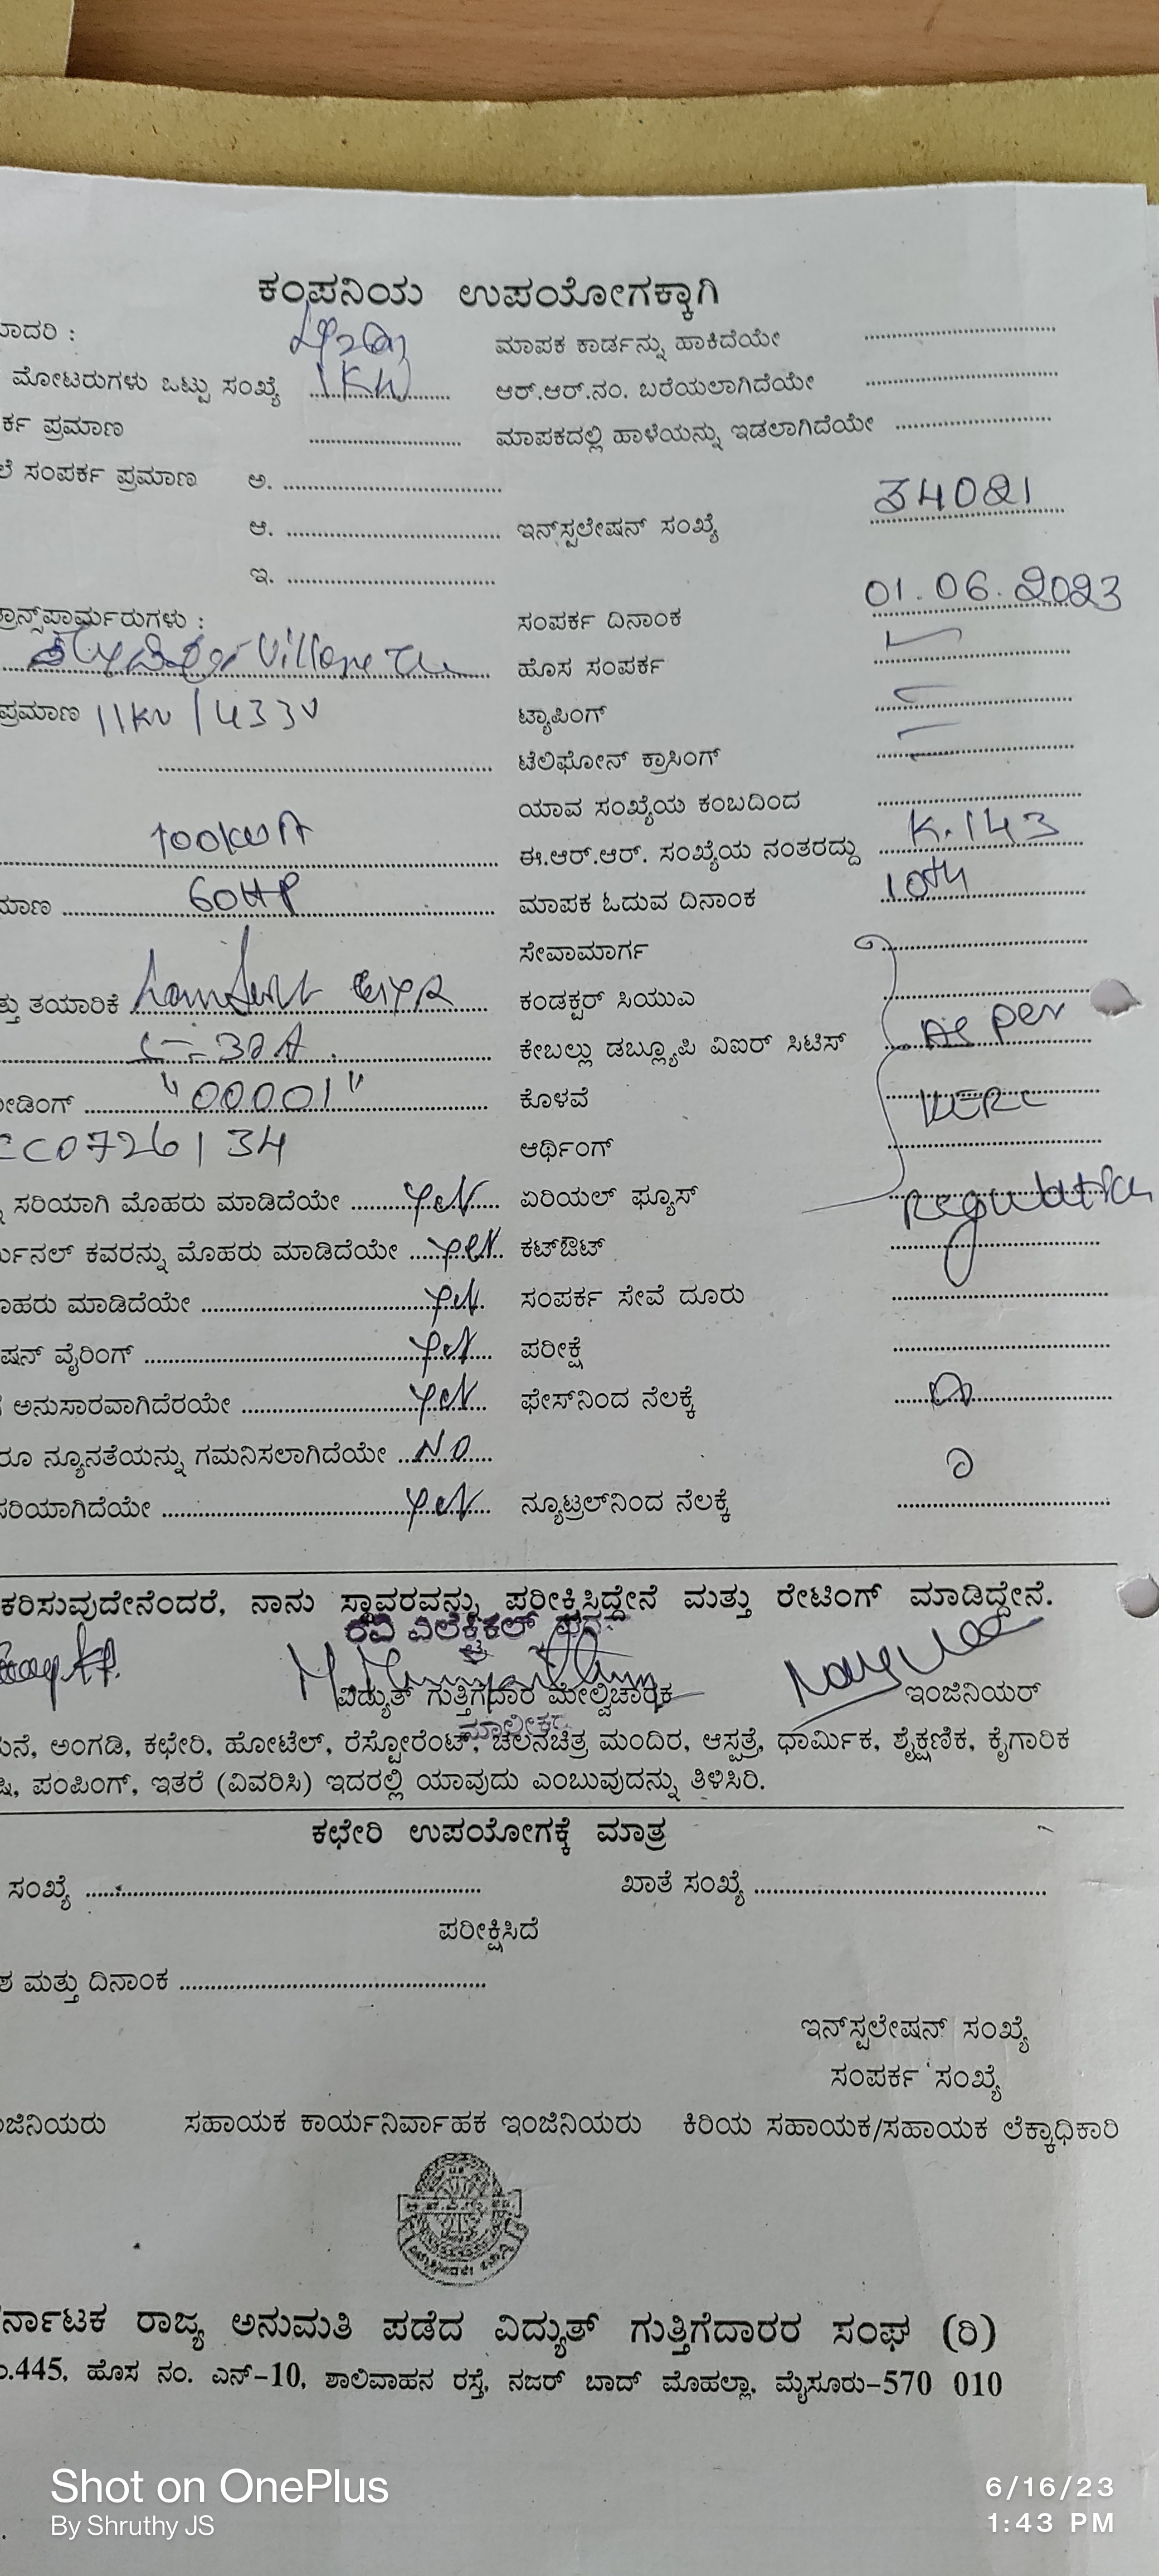 ಕಂಪನಿಯ ಉಪಯೋಗಕ್ಕಾಗಿ
ಾದರಿ : ಮಾಪಕ ಕಾರ್ಡನ್ನು ಹಾಕಿದೆಯೇ
ಮೋಟರುಗಳು ಒಟ್ಟು ಸಂಖ್ಯೆ 1KW ಆರ್.ಆರ್.ನಂ. ಬರೆಯಲಾಗಿದೆಯೇ
ರ್ಕ ಪ್ರಮಾಣ ಮಾಪಕದಲ್ಲಿ ಹಾಳೆಯನ್ನು ಇಡಲಾಗಿದೆಯೇ
ಲೆ ಸಂಪರ್ಕ ಪ್ರಮಾಣ ಅ.
ಆ. ಇನ್‌ಸ್ಟಲೇಷನ್ ಸಂಖ್ಯೆ 34021
ಇ.
್ರಾನ್ಸ್‌ಪಾರ್ಮರುಗಳು : ಸಂಪರ್ಕ ದಿನಾಂಕ 01.06.2023
Village ಹೊಸ ಸಂಪರ್ಕ
ಪ್ರಮಾಣ 11KV / 433V ಟ್ಯಾಪಿಂಗ್
ಟೆಲಿಫೋನ್ ಕ್ರಾಸಿಂಗ್
ಯಾವ ಸಂಖ್ಯೆಯ ಕಂಬದಿಂದ
100KVA ಈ.ಆರ್.ಆರ್. ಸಂಖ್ಯೆಯ ನಂತರದ್ದು K.143
ಮಾಣ 60HP ಮಾಪಕ ಓದುವ ದಿನಾಂಕ 10th
ಸೇವಾಮಾರ್ಗ
ತ್ತು ತಯಾರಿಕೆ ಕಂಡಕ್ಟರ್ ಸಿಯುಎ
5-30A ಕೇಬಲ್ಲು ಡಬ್ಲ್ಯೂಪಿ ವಿಐರ್ ಸಿಟಿಸ್ As per
ೀಡಿಂಗ್ "00001" ಕೊಳವೆ KERC
CC0726134 ಆರ್ಥಿಂಗ್
ಸರಿಯಾಗಿ ಮೊಹರು ಮಾಡಿದೆಯೇ yes ಏರಿಯಲ್ ಫ್ಯೂಸ್ Regulation
ರ್ಮಿನಲ್ ಕವರನ್ನು ಮೊಹರು ಮಾಡಿದೆಯೇ yes ಕಟ್‌ಔಟ್
ೊಹರು ಮಾಡಿದೆಯೇ yes ಸಂಪರ್ಕ ಸೇವೆ ದೂರು
ಷನ್ ವೈರಿಂಗ್ yes ಪರೀಕ್ಷೆ
ಅನುಸಾರವಾಗಿದೆರಯೇ yes ಫೇಸ್‌ನಿಂದ ನೆಲಕ್ಕೆ
ರೂ ನ್ಯೂನತೆಯನ್ನು ಗಮನಿಸಲಾಗಿದೆಯೇ NO
ಸರಿಯಾಗಿದೆಯೇ yes ನ್ಯೂಟ್ರಲ್‌ನಿಂದ ನೆಲಕ್ಕೆ
ಕರಿಸುವುದೇನೆಂದರೆ, ನಾನು ಸ್ಥಾವರವನ್ನು ಪರೀಕ್ಷಿಸಿದ್ದೇನೆ ಮತ್ತು ರೇಟಿಂಗ್ ಮಾಡಿದ್ದೇನೆ.
ರವಿ ಎಲೆಕ್ಟ್ರಿಕಲ್
ವಿದ್ಯುತ್ ಗುತ್ತಿಗೆದಾರ ಮೇಲ್ವಿಚಾರಕ ಇಂಜಿನಿಯರ್
ಮಾಲೀಕರು
ುನೆ, ಅಂಗಡಿ, ಕಛೇರಿ, ಹೋಟೆಲ್, ರೆಸ್ಟೋರೆಂಟ್, ಚಲನಚಿತ್ರ ಮಂದಿರ, ಆಸ್ಪತ್ರೆ, ಧಾರ್ಮಿಕ, ಶೈಕ್ಷಣಿಕ, ಕೈಗಾರಿಕ
ಷಿ, ಪಂಪಿಂಗ್, ಇತರೆ (ವಿವರಿಸಿ) ಇದರಲ್ಲಿ ಯಾವುದು ಎಂಬುವುದನ್ನು ತಿಳಿಸಿರಿ.
ಕಛೇರಿ ಉಪಯೋಗಕ್ಕೆ ಮಾತ್ರ
ಸಂಖ್ಯೆ ಖಾತೆ ಸಂಖ್ಯೆ
ಪರೀಕ್ಷಿಸಿದೆ
ಶ ಮತ್ತು ದಿನಾಂಕ
ಇನ್‌ಸ್ಟಲೇಷನ್ ಸಂಖ್ಯೆ
ಸಂಪರ್ಕ ಸಂಖ್ಯೆ
ಂಜಿನಿಯರು ಸಹಾಯಕ ಕಾರ್ಯನಿರ್ವಾಹಕ ಇಂಜಿನಿಯರು ಕಿರಿಯ ಸಹಾಯಕ/ಸಹಾಯಕ ಲೆಕ್ಕಾಧಿಕಾರಿ
ರ್ನಾಟಕ ರಾಜ್ಯ ಅನುಮತಿ ಪಡೆದ ವಿದ್ಯುತ್ ಗುತ್ತಿಗೆದಾರರ ಸಂಘ (ರಿ)
ಂ.445, ಹೊಸ ನಂ. ಎನ್-10, ಶಾಲಿವಾಹನ ರಸ್ತೆ, ನಜರ್ ಬಾದ್ ಮೊಹಲ್ಲಾ, ಮೈಸೂರು-570 010
Shot on OnePlus 6/16/23
By Shruthy JS 1:43 PM